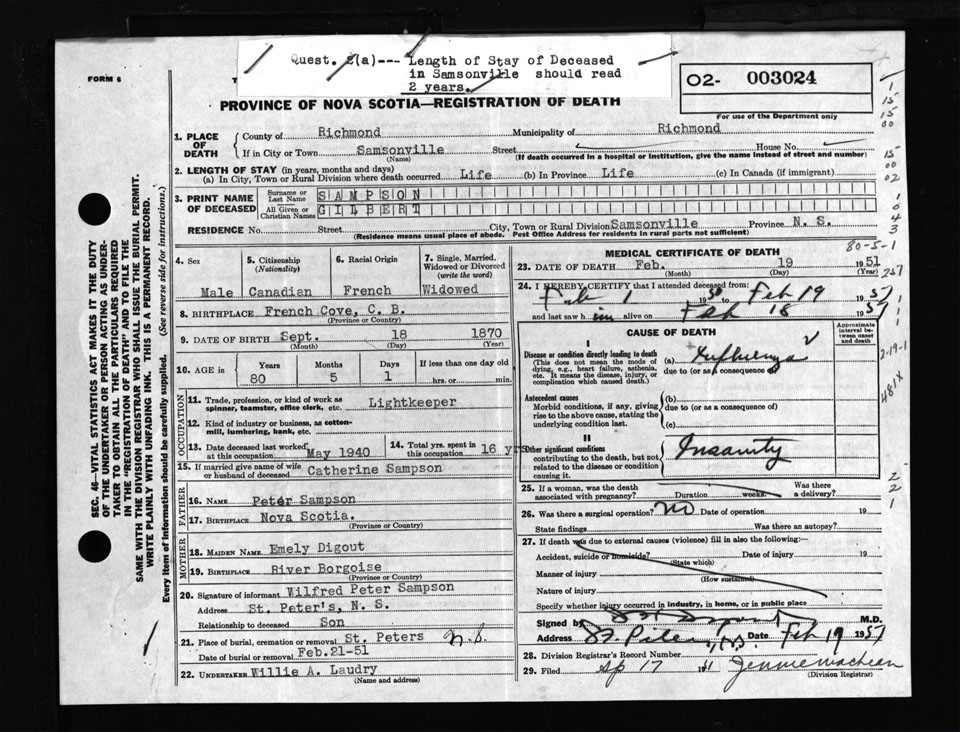 Quest. 2(a)--- Length of Stay of Deceased
in Samsonville should read
2 years.
FORM 6
O2- 003024
For use of the Department only
PROVINCE OF NOVA SCOTIA—REGISTRATION OF DEATH
1. PLACE OF DEATH
County of Richmond Municipality of Richmond
If in City or Town Samsonville Street House No.
(Name) (If death occurred in a hospital or institution, give the name instead of street and number)
2. LENGTH OF STAY (in years, months and days)
(a) In City, Town or Rural Division where death occurred Life (b) In Province Life (c) In Canada (if immigrant)
3. PRINT NAME OF DECEASED
Surname or Last Name SAMPSON
All Given or Christian Names GILBERT
RESIDENCE No. Street City, Town or Rural Division Samsonville Province N. S.
(Residence means usual place of abode. Post Office Address for residents in rural parts not sufficient)
4. Sex
Male
5. Citizenship
(Nationality)
Canadian
6. Racial Origin
French
7. Single, Married, Widowed or Divorced
(write the word)
Widowed
8. BIRTHPLACE French Cove, C. B.
(Province or Country)
9. DATE OF BIRTH Sept. 18 1870
(Month) (Day) (Year)
10. AGE in
Years Months Days If less than one day old
80 5 1 hrs. or min.
OCCUPATION
11. Trade, profession, or kind of work as
spinner, teamster, office clerk, etc. Lightkeeper
12. Kind of industry or business, as cotton-
mill, lumbering, bank, etc.
13. Date deceased last worked
at this occupation May 1940
14. Total yrs. spent in
this occupation 16 yrs
15. If married give name of wife
or husband of deceased Catherine Sampson
FATHER
16. NAME Peter Sampson
17. BIRTHPLACE Nova Scotia.
(Province or Country)
MOTHER
18. MAIDEN NAME Emely Digout
19. BIRTHPLACE River Borgoise
(Province or Country)
20. Signature of informant Wilfred Peter Sampson
Address St. Peter's, N. S.
Relationship to deceased Son
21. Place of burial, cremation or removal St. Peters N.S.
Date of burial or removal Feb.21-51
22. UNDERTAKER Willie A. Laudry
(Name and address)
MEDICAL CERTIFICATE OF DEATH
23. DATE OF DEATH Feb. 19 1951
(Month) (Day) (Year)
24. I HEREBY CERTIFY that I attended deceased from:
Feb 1 1950 to Feb 19 1951
and last saw him alive on Feb 18 1951
CAUSE OF DEATH
Approximate interval between onset and death
I
Disease or condition directly leading to death
(This does not mean the mode of
dying, e.g., heart failure, asthenia,
etc. It means the disease, injury, or
complication which caused death.)
(a) Influenza
due to (or as a consequence of)
Antecedent causes
Morbid conditions, if any, giving
rise to the above cause, stating the
underlying condition last.
(b)
due to (or as a consequence of)
(c)
II
Other significant conditions
contributing to the death, but not
related to the disease or condition
causing it.
Insanity
25. If a woman, was the death
associated with pregnancy? Duration weeks. Was there a delivery?
26. Was there a surgical operation? No Date of operation 19
State findings Was there an autopsy?
27. If death was due to external causes (violence) fill in also the following:
Accident, suicide or homicide? Date of injury 19
(State which)
Manner of injury
(How sustained)
Nature of injury
Specify whether injury occurred in industry, in home, or in public place
Signed by M.D.
Address Date Feb 19 1951
28. Division Registrar's Record Number
29. Filed 17 Jennie MacLean
(Division Registrar)
SEC. 46—VITAL STATISTICS ACT MAKES IT THE DUTY
OF THE UNDERTAKER OR PERSON ACTING AS UNDER-
TAKER TO OBTAIN ALL THE PARTICULARS REQUIRED
IN THE "REGISTRATION OF DEATH" AND TO FILE THE
SAME WITH THE DIVISION REGISTRAR WHO SHALL ISSUE THE BURIAL PERMIT.
WRITE PLAINLY WITH UNFADING INK. THIS IS A PERMANENT RECORD.
Every item of information should be carefully supplied. (See reverse side for instructions.)
80-5-1
257
2-19-1
481X